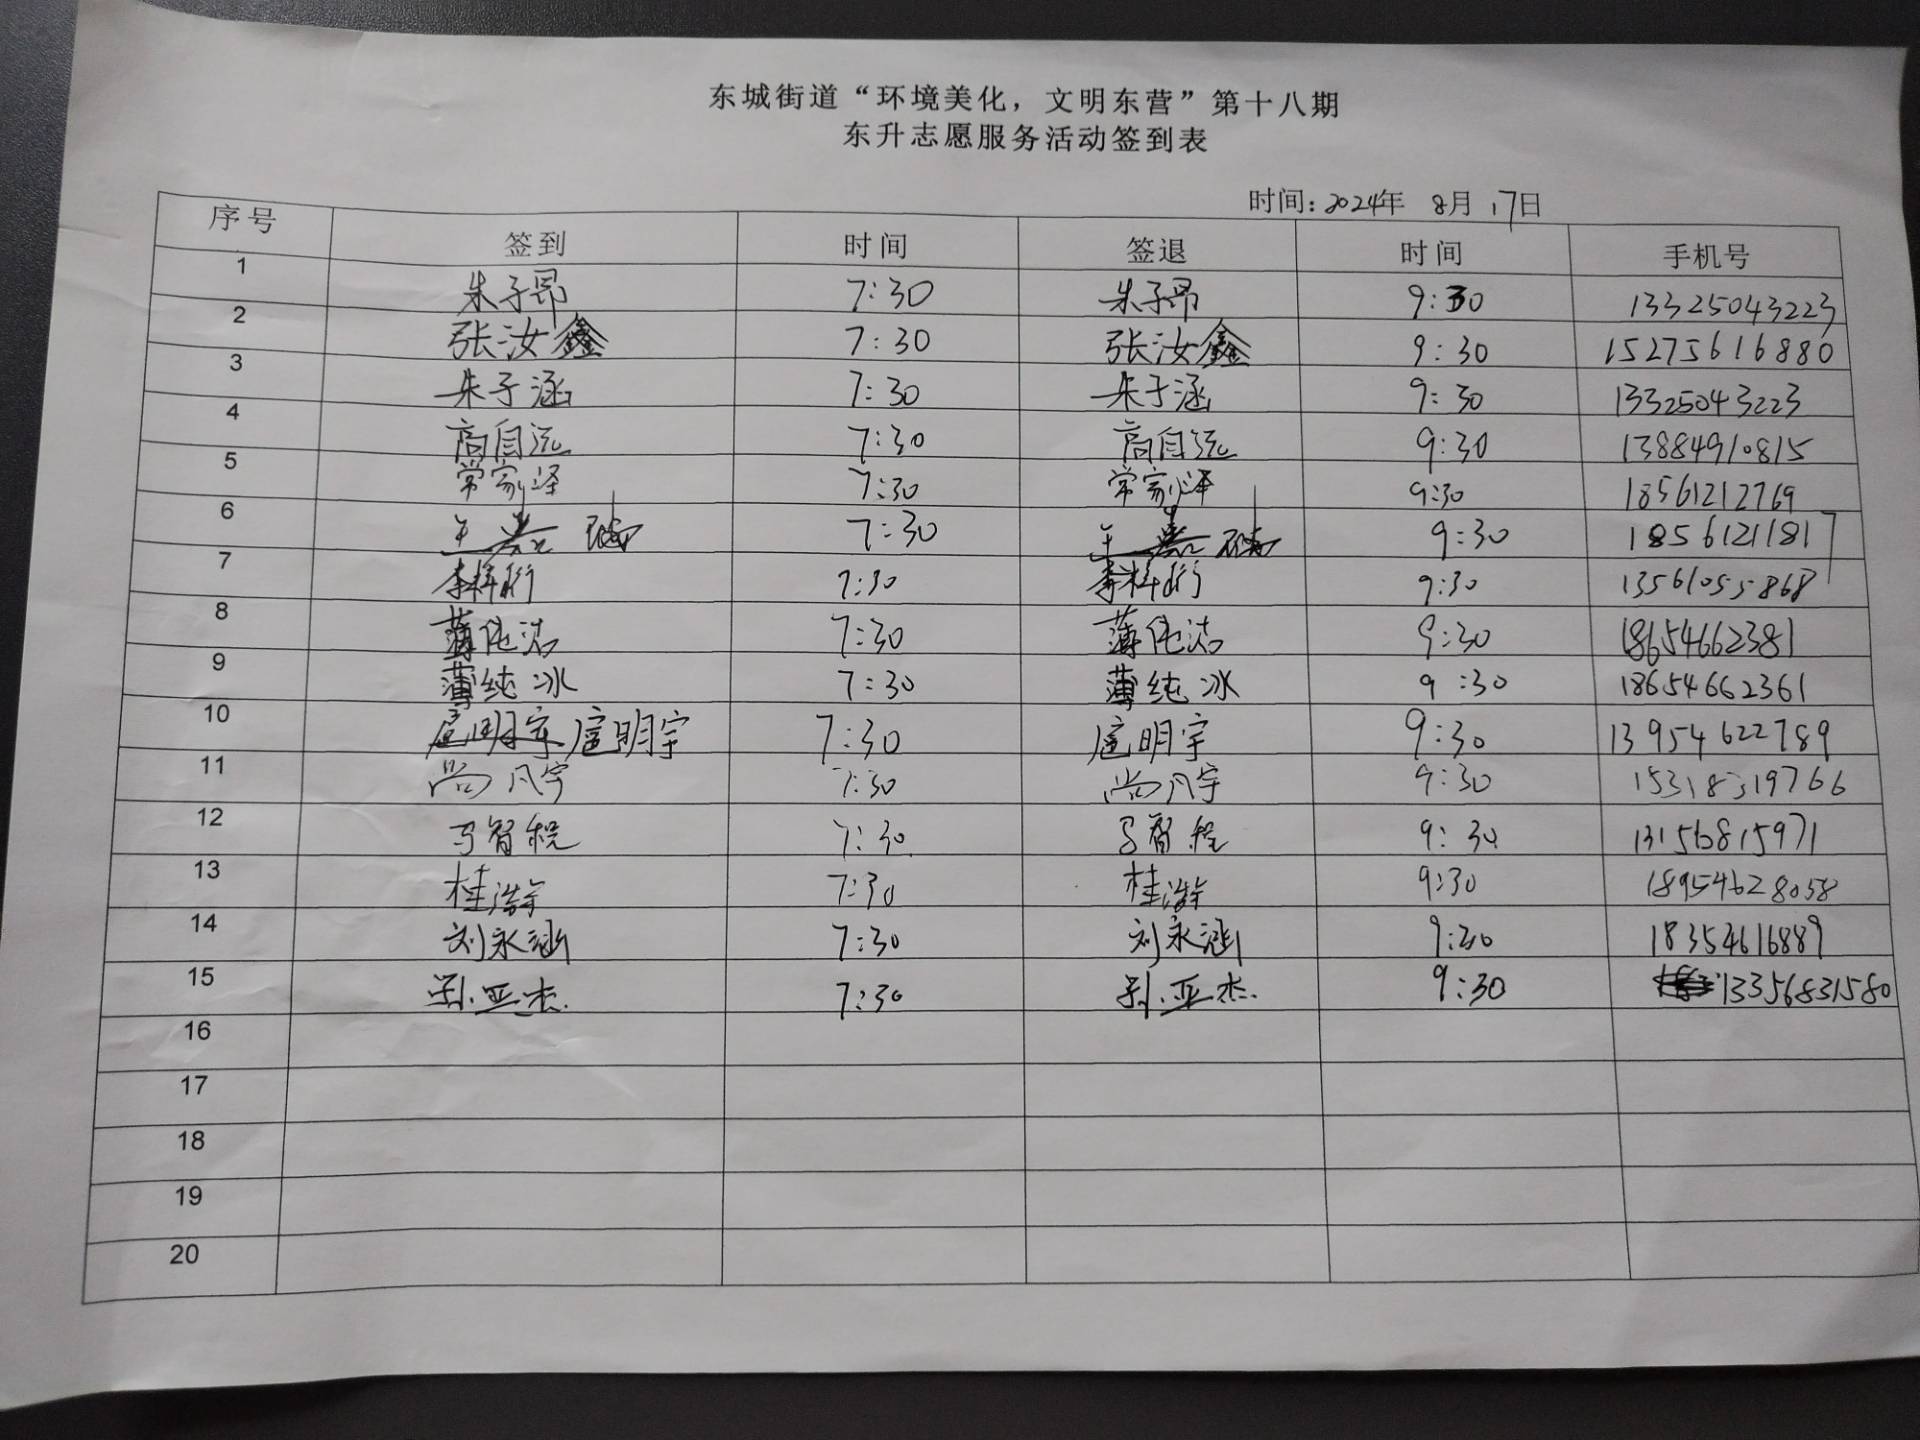 东城街道“环境美化，文明东营”第十八期
东升志愿服务活动签到表
时间：2024年 8月 17日
序号 签到 时间 签退 时间 手机号
1 朱子昂 7:30 朱子昂 9:30 13325043223
2 张汝鑫 7:30 张汝鑫 9:30 15275616880
3 朱子涵 7:30 朱子涵 9:30 13325043223
4 高自远 7:30 高自远 9:30 13884910815
5 常家泽 7:30 常家泽 9:30 18561212769
6 王 7:30 王 9:30 18561211817
7 李梓珩 7:30 李梓珩 9:30 13561055868
8 薄纯洁 7:30 薄纯洁 9:30 18654662381
9 薄纯冰 7:30 薄纯冰 9:30 18654662361
10 扈明宇 扈明宇 7:30 扈明宇 9:30 13954622789
11 尚凡宇 7:30 尚凡宇 9:30 15318319766
12 马智程 7:30 马智程 9:30 13156815971
13 桂浩宇 7:30 桂浩宇 9:30 18954628058
14 刘永涵 7:30 刘永涵 9:30 18354616889
15 孙亚杰 7:30 孙亚杰 9:30 13356831580
16
17
18
19
20